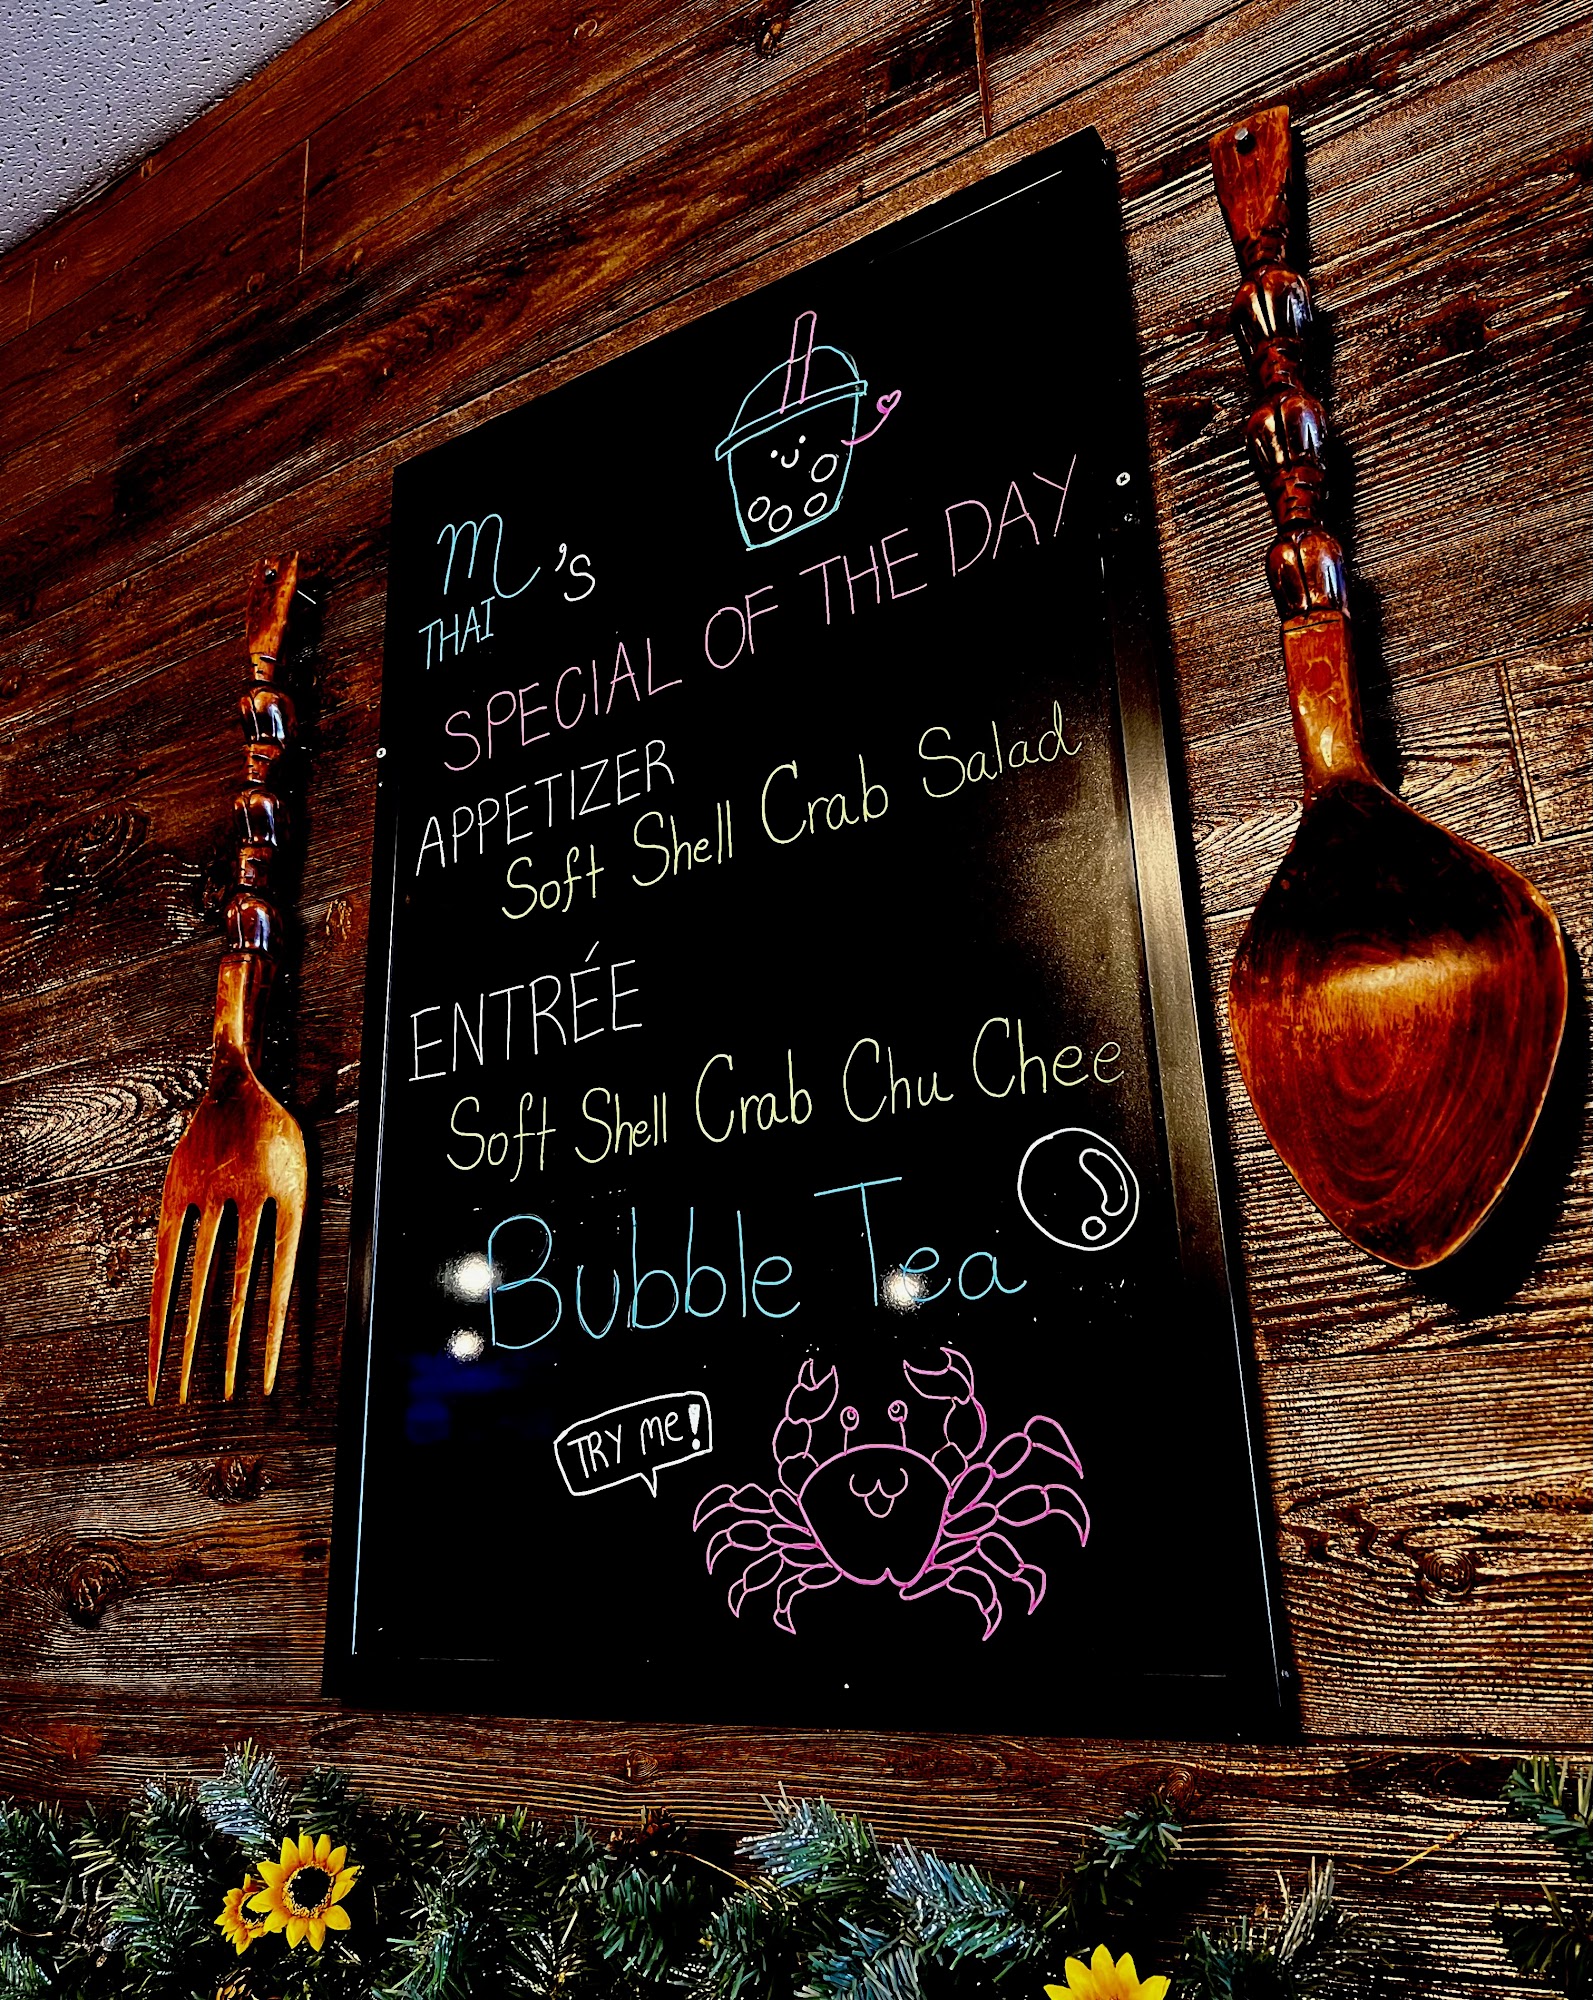 M's
THAI
SPECIAL OF THE DAY
APPETIZER
Soft Shell Crab Salad
ENTRÉE
Soft Shell Crab Chu Chee
Bubble Tea
TRY ME!